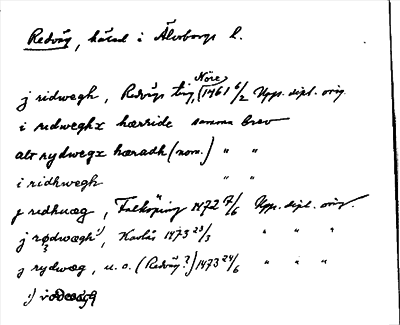 Redväg, härad i Älvborgs l.
j ridwægh, Redvägs ting, (Nöre) 1461 6/2 Upps. dipl. orig.
i redweghx hærride samma brev
aff rydwegx hæradh (nom.) " "
i ridhwegh " "
j redhuæg, Falköping 1472 7/6 Upps. dipl. orig.
j rødwægh 1), Havlös 1473 23/3 " " "
j rydwæg, u.o. (Redväg?) 1473 24/6 " " "
1)